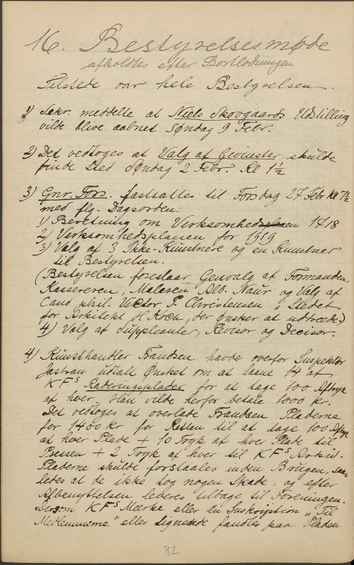 16. Bestyrelsesmøde
afholdtes efter Bortlodningen
Tilstede var hele Bestyrelsen.
1) Sekr. meddelte at Niels Skovgaards Udstilling
vilde blive aabnet Søndag 9 Febr.
2) Det vedtoges at Valg af Gevinster skulde
finde Sted Søndag 2 Febr. Kl 1½
3) Gnr. Fors. fastsattes til Torsdag 27 Febr Kl 7½
med flg. Dagsorden
1) Beretning om Virksomheden 1918
2) Virksomhedsplanen for 1919
3) Valg af 3 Ikke-Kunstnere og en Kunstner
til Bestyrelsen.
(Bestyrelsen foreslaar Genvalg af Formanden,
Kassereren, Maleren Alb. Naur og Valg af
Cand. phil. Victor P. Christensen i Stedet
for Arkitekt der ønsker at udtræde)
4) Valg af Suppleanter, Revisor og Decisor.
4) Kunsthandler Frandsen havde overfor Inspektør
Jastrau udtalt Ønsket om at have 14 af
KFs Raderingsplader for at tage 100 Aftryk
af hver. Han vilde herfor betale 1000 kr.
Det vedtoges at overlade Frandsen Pladerne
for 1400 kr for Retten til at tage 100 Aftr.
af hver Plade + 10 Tryk af hver Plade til
+ 2 Tryk af hver til KFs Arkiv.
Pladerne skulde forstaales inden Brugen,
ledes at de ikke tog nogen Skade, og efter
Afbenyttelsen leveres tilbage til Foreningen.
Dersom KFs Mærke eller en Inskription "Til
Medlemmerne" eller lignende fandtes paa Pladen
32